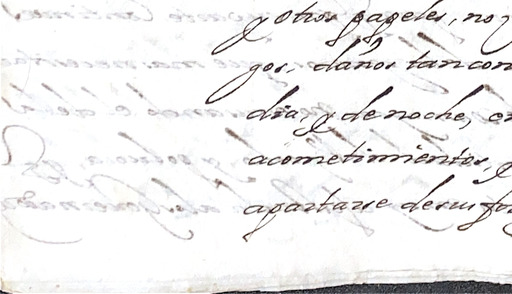 y otros papeles, no
gos, daños tan con
dia, y de noche, en
acometimientos, y
apartarse de su